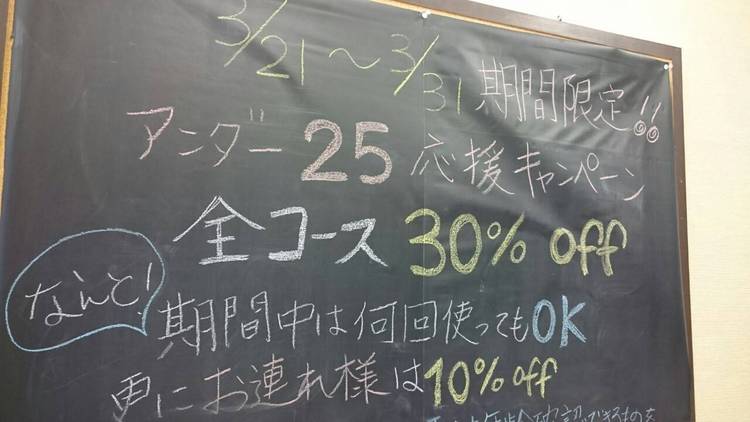 3/21～3/31 期間限定!!
アンダー25 応援キャンペーン
全コース 30% off
なんと!
期間中は何回使ってもOK
更にお連れ様は10% off